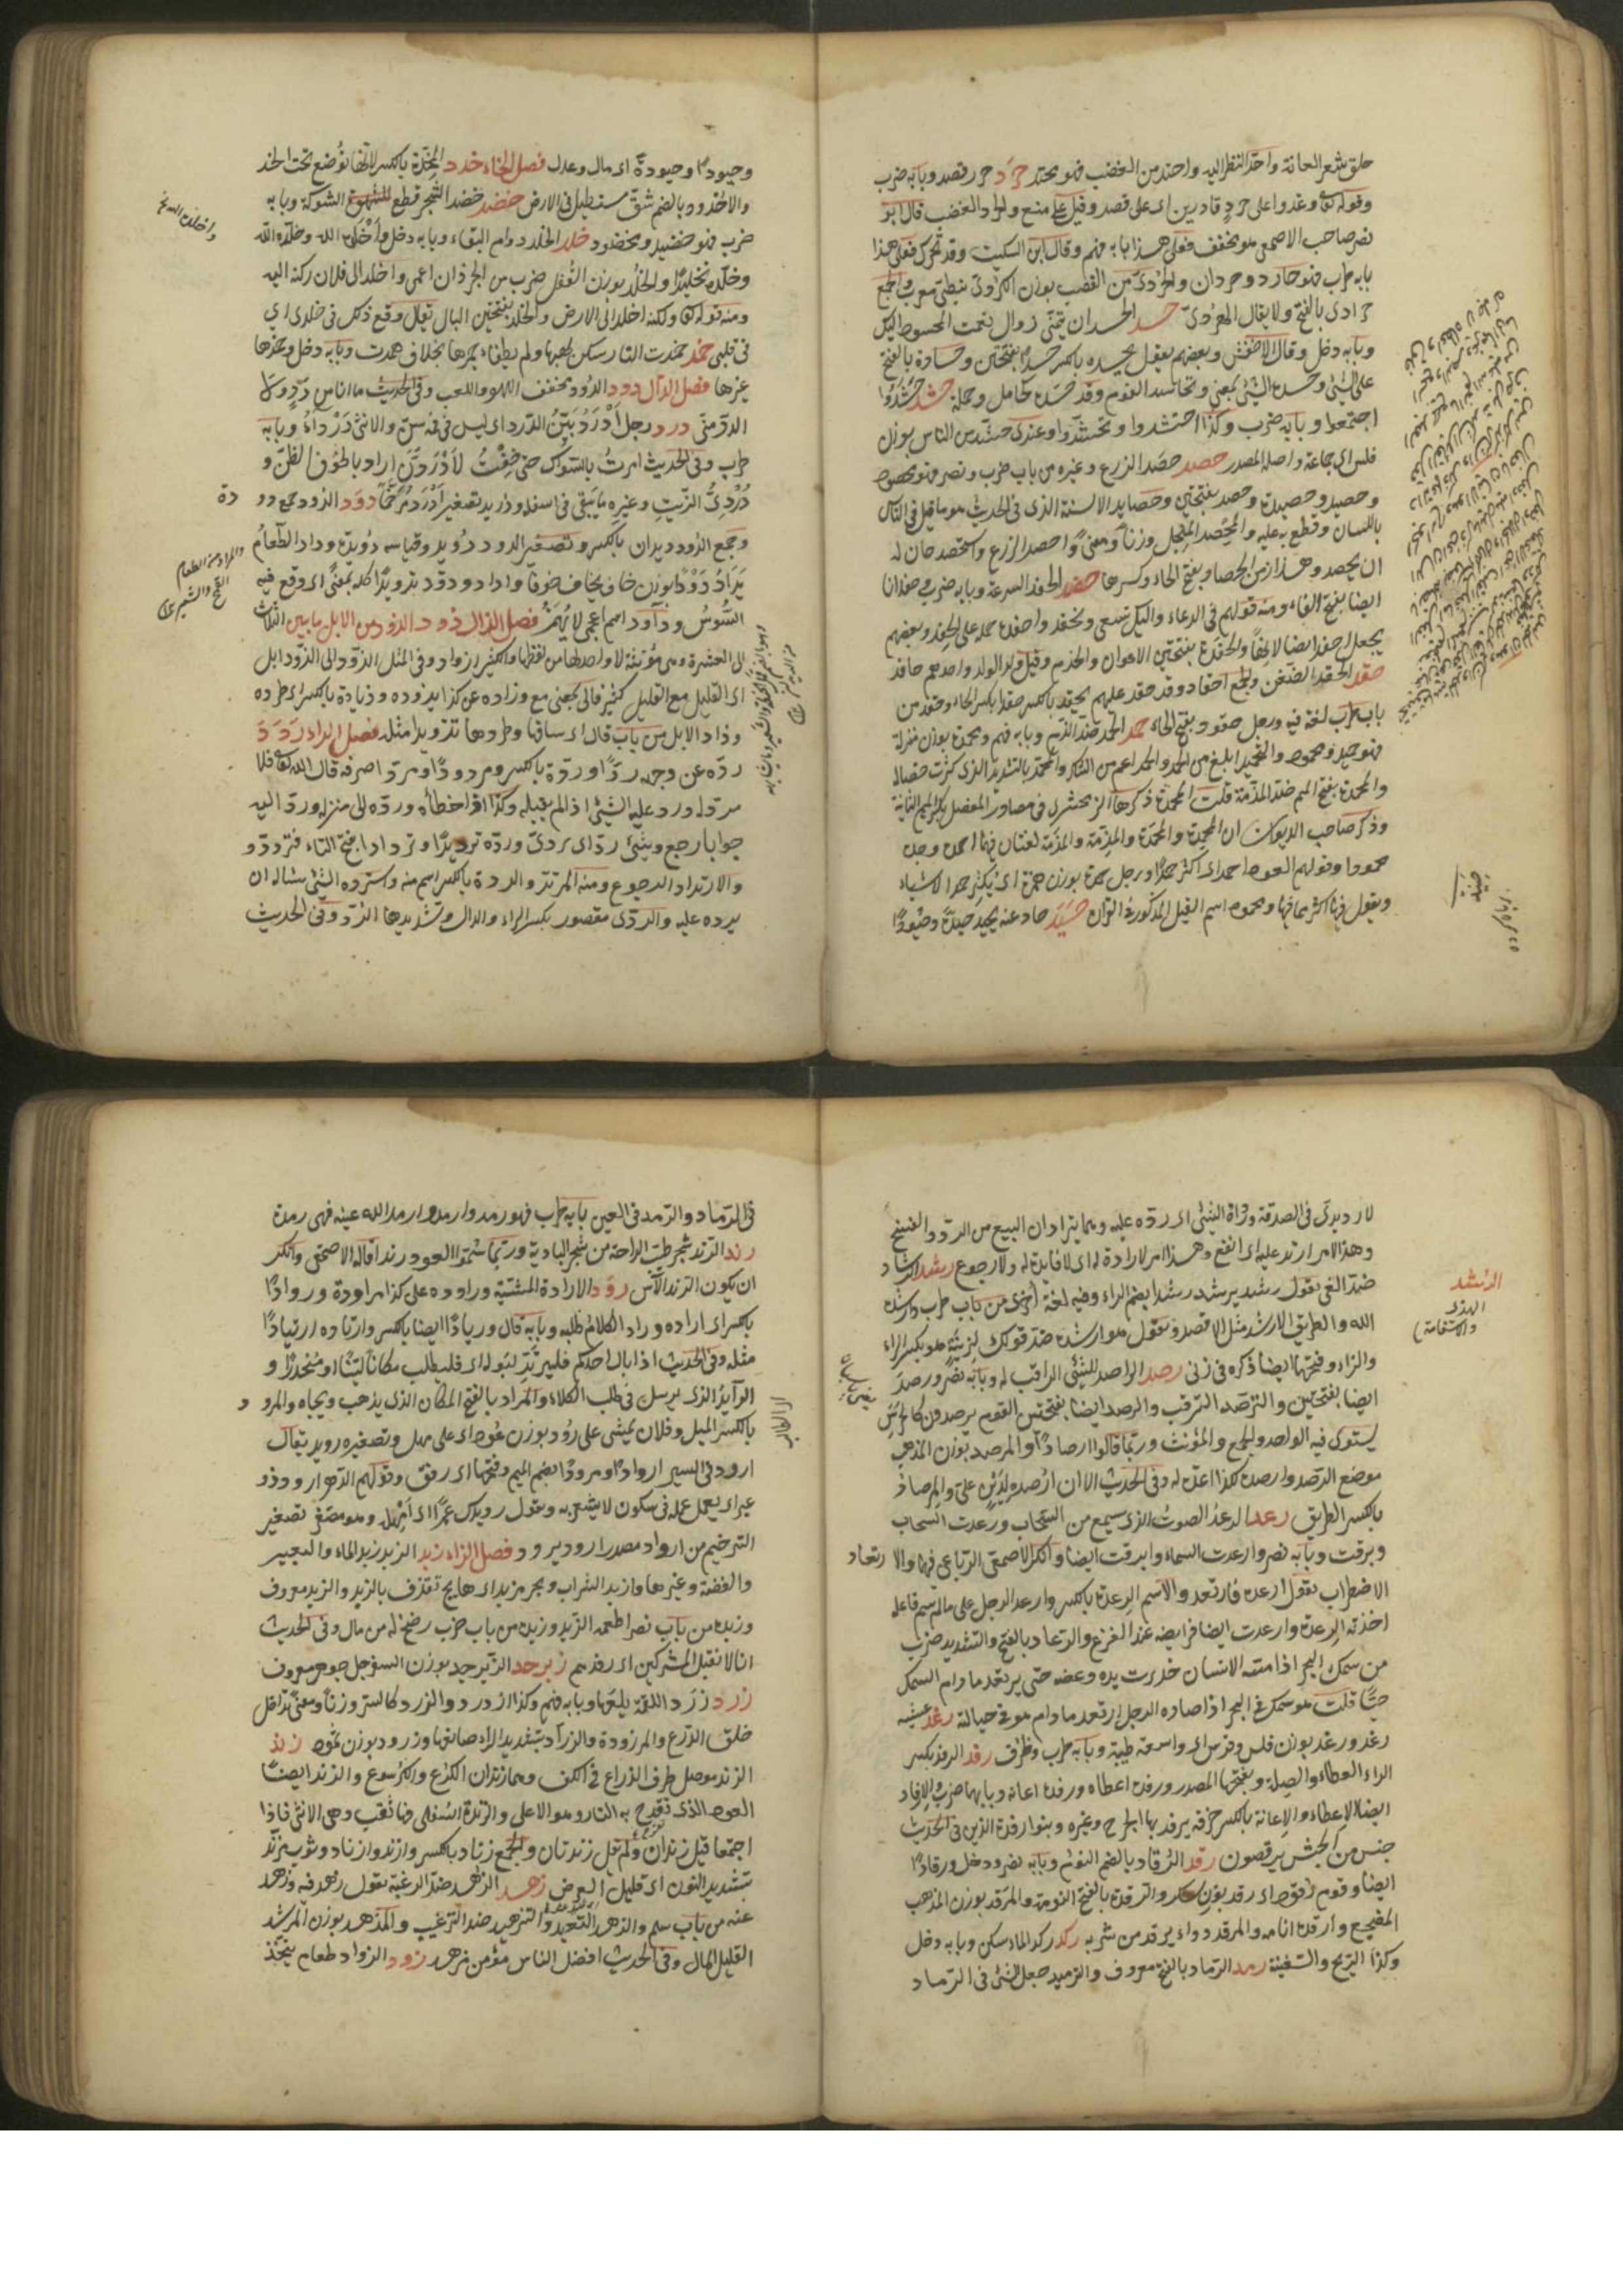 حلق شعر العانة واحدّ النظر اليه واحتد من الغضب فهو محتد حرد حرد قصد وبابه ضرب
وقوله تعا وغدوا على حرد قادرين اى على قصد وقيل على منع والحرد الغضب قال ابو
نصر صاحب الاصمعى هو مخفف فعلى هذا بابه فهم وقال ابن السكيت وقد تحرك فعلى هذا
بابه طرب فهو حارد وحردان والحردى من القصب بوزن الكردى نبطى معرب والجمع
حرادى بالفتح ولا يقال الهردى حسد الحسد ان تتمنى زوال نعمت المحسود اليك
وبابه دخل وقال الاخفش وبعضهم يقول يحسده بالكسر حسدا بفتحتين وحسادة بالفتح
على الشئ وحسده الشئ بمعنى وتحاسد القوم وقوم حسدة كحامل وحملة حشد حشدوا
اجتمعوا وبابه ضرب وكذا احتشدوا وتحشدوا وعندى حشد من الناس بوزن
فلس اى جماعة واصله المصدر حصد حصد الزرع وغيره من باب ضرب ونصر فهو محصود
وحصيد وحصيدة وحصد بفتحتين وحصايد الالسنة الذى فى الحديث هو ما قيل فى الناس
باللسان وقطع به عليه والمحصد المنجل وزنا ومعنى واحصد الزرع واستحصد حان له
ان يحصد وهذا زمن الحصاد بفتح الحاء وكسرها حفد الحفد السرعة وبابه ضرب وحفدانا
ايضا بفتح الفاء ومنه قولهم فى الدعاء واليك نسعى ونحفد واحفده حمله على الحفد وبعضهم
يجعل احفد ايضا لازما والحفدة بفتحتين الاعوان والخدم وقيل ولد الولد واحدهم حافد
حقد الحقد الضغن والجمع احقاد وقد حقد عليهم يحقد بالكسر حقدا بكسر الحاء وحقد من
باب طرب لغة فيه ورجل حقود بفتح الحاء حمد الحمد ضد الذم وبابه فهم ومحمدة بوزن منزلة
فهو حميد ومحمود والتحميد ابلغ من الحمد والحمد اعم من الشكر والمحمد بالتشديد الذى كثرت خصاله
والمحمدة بفتح الميم ضد المذمة قلت المحمدة ذكرها الزمخشرى فى مصادر المفصل بكسر الميم الثانية
وذكر صاحب الديوان ان المحمدة والمحمدة والمذمة والمذمة لغتان فيهما احمده وجده
محمودا وقولهم العود احمد اى اكثر حمدا ورجل حمدة بوزن همزة اى يكثر حمد الاشياء
ويقول فيها اكثر مما فيها ومحمود اسم الفيل المذكور فى القران حيد حاد عنه يحيد حيدة وحيودا
وحيودا وحيودة اى مال وعدل فصل الخاء خدد المخدة بالكسر لانها توضع تحت الخد
والاخدود بالضم شق مستطيل فى الارض خضد خضد الشجر قطع الشوكة وبابه
ضرب فهو خضيد ومخضود خلد الخلد دوام البقاء وبابه دخل واخلده الله وخلده الله
وخلده تخليدا والخلد بوزن القفل ضرب من الجرذان اعمى واخلد الى فلان ركن اليه
ومنه قوله تعا ولكنه اخلد الى الارض والخلد بفتحتين البال تقال وقع ذلك فى خلدى اى
فى قلبى خمد خمدت النار سكن لهبها ولم يطفاء جمرها بخلاف همدت وبابه دخل وخمزها
غيرها فصل الدال دود الدود مخفف اللهو واللعب وفى الحديث ما انا من دد ولا
الدد منى درد رجل ادرد بين الدرد اى ليس فى فمه سن والانثى درداء وبابه
طرب وفى الحديث امرت بالسواك حتى خفت لادردن اراد بالخوف الظن و
دردى الزيت وغيره ما يبقى فى اسفله ودريد تصغير ادرد مرخما دود الدود جمع دو دة
وجمع الدود ديدان بالكسر وتصغير الدود دويد وقياسه دويدة وداد الطعام
يداد دودا بوزن خاف يخاف خوفا واداد ودود تدويدا كله بمعنى اى وقع فيه
السوس وداود اسم اعجمى لا يهمز فصل الذال ذود الذود من الابل ما بين الثلاث
الى العشرة وهى مؤنثة لا واحد لها من لفظها والكثير اذواد وفى المثل الذود الى الذود ابل
اى القليل مع القليل كثير فالى بمعنى مع وذاده عن كذا يذوده وذيادة بالكسر اى طرده
وذاد الابل من باب قال اى ساقها وطردها تذويدا مثله فصل الراء ردد
رده عن وجهه ردا وردة بالكسر ومردودا ومردا صرفه قال الله تعا فلا
مرد له ورد عليه الشئ اذا لم يقبله وكذا اذا خطأه ورده الى منزله ورد اليه
جوابا رجع وشئ رد اى ردى ورده ترديدا وتردادا بفتح التاء فتردد و
والارتداد الرجوع ومنه المرتد والردة بالكسر اسم منه واسترده الشئ سئاله ان
يرده عليه والردى مقصور بكسر الراء والدال وتشديدها الرد وفى الحديث
لا رديدى فى الصدقة وراده الشئ اى رده عليه وهما يترادان البيع من الرد والفسخ
وهذا الامر ارد عليه اى انفع وهذا امر لا رادة له اى لا فايدة له ولا رجوع رشد الرشاد
ضد الغى تقول رشد يرشد رشدا بضم الراء وفيه لغة اخرى من باب طرب وارشده
الله والطريق الارشد مثل الاقصد وتقول هو لرشدة ضد قولك لزنية هو بكسر الراء
والزاء وفتحهما ايضا ذكره فى زنى رصد الراصد للشئ الراقب له وبابه نصر ورصد
ايضا بفتحتين والترصد الترقب والرصد ايضا بفتحتين القوم يرصدون كالحرس
يستوى فيه الواحد والجمع والمؤنث وربما قالوا ارصادا والمرصد بوزن المذهب
موضع الرصد وارصده لكذا اعد له وفى الحديث الا ان ارصده لدين على والمرصاد
بالكسر الطريق رعد الرعد الصوت الذى يسمع من السحاب ورعدت السحاب
وبرقت وبابه نصر وارعدت السماء وابرقت ايضا وانكر الاصمعى الرباعى فيهما والا رتعاد
الاضطراب تقول ارعده فارتعد والاسم الرعدة بالكسر وارعد الرجل على ما لم يسم فاعله
اخذته الرعدة وارعدت ايضا فرايصه عند الفزع والرعاد بالفتح والتشديد ضرب
من سمك البحر اذا مسه الانسان خدرت يده وعضده حتى يرتعد ما دام السمك
حيا قلت هو سمك فى البحر اذا صاده الرجل ارتعد ما دام هو فى حبالة رغد عيشه
رغد ورغد بوزن فلس وفرس اى واسعة طيبة وبابه طرب وظرف رفد الرفد بكسر
الراء العطاء والصلة وبفتحها المصدر ورفده اعطاه ورفده اعانه وبابهما ضرب والارفاد
ايضا الاعطاء والاعانة بالكسر خرقة يرفد بها الجرح وغيره وبنوا ارفدة الذين فى الحديث
جنس من الحبش يرقصون رقد الرقاد بالضم النوم وبابه نصر ودخل ورقادا
ايضا وقوم رقود اى رقد بوزن سكر والرقدة بالفتح النومة والمرقد بوزن المذهب
المضجع وارقده انامه والمرقد دواء يرقد من شربه ركد ركد الماء سكن وبابه دخل
وكذا الريح والسفينة رمد الرماد بالفتح معروف والترميد جعل الشئ فى الرماد
الرشد
الهدى
والاستقامة
فى الرماد والرمد فى العين بابه طرب فهو رمد وارمد وارمد الله عينه فهى رمدة
رند الرند شجر طيب الراحة من شجر البادية وربما سموا العود رندا قاله الاصمعى وانكر
ان يكون الرند الآس رود الارادة المشيئة وراوده على كذا مراودة وروادا
بالكسر اى اراده وراد الكلاء طلبه وبابه قال وريادا ايضا بالكسر وارتاده ارتيادا
مثله وفى الحديث اذا بال احدكم فليرتد لبوله اى فليطلب مكانا لينا او منحدرا و
الرايد الذى يرسل فى طلب الكلاء والمراد بالفتح المكان الذى يذهب ويجاء والمرو د
بالكسر الميل وفلان يمشى على رود بوزن عود اى على مهل وتصغيره رويد يقال
ارود فى السير اروادا ومرودا بضم الميم وفتحها اى رفق وقولهم الدهر ارود ذو
غير اى يعمل عمله فى سكون لا يشعر به وتقول رويدك عمرا اى امهله وهو مصغر تصغير
الترخيم من ارواد مصدر ارود يرود فصل الزاء زبد الزبد زبد الماء والبعير
والفضة وغيرها وازبد الشراب وبحر مزبد اى هايج تقذف بالزبد والزبد معروف
وزبده من باب نصر اطعمه الزبد وزبده من باب ضرب رضخ له من مال وفى الحديث
انا لا نقبل زبد المشركين اى رفدهم زبرجد الزبرجد بوزن السفرجل جوهر معروف
زرد زرد اللقمة بلعها وبابه فهم وكذا ازدرد والزرد كالسرد وزنا ومعنى تداخل
حلق الدرع والمزرودة والزراد بتشديد الراء صانعها وزرود بوزن ثمود زند
الزند موصل طرف الذراع فى الكف وهما زندان الكوع والكرسوع والزند ايضا
العود الذى تقدح به النار وهو الاعلى والزندة السفلى فيها ثقب وهى الانثى فاذا
اجتمعا قيل زندان ولم تقل زندتان والجمع زناد بالكسر وازند وازناد وثوب مزند
بتشديد النون اى قليل العرض زهد الزهد ضد الرغبة تقول زهد فيه وزهد
عنه من باب سلم والزهد التعبد والتزهيد ضد الترغيب والمزهد بوزن المرشد
القليل المال وفى الحديث افضل الناس مؤمن مزهد زود الزواد طعام يتخذ